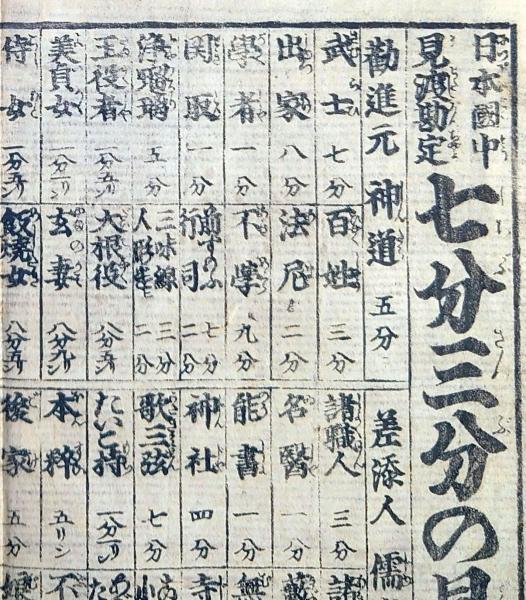 日本國中
見渡勘定
七分三分の見
勧進元 神道 五分 差添人 儒
武士 七分
出家 八分
學者 一分
関取 一分
浄瑠璃 五分
王役者 一分五リ
美貞女 一分リン
侍女 一分五リ
百姓 三分
法尼 二分
不學 九分
七分
行司 二分
三味線 三分
人形 二分
大根役 八分五リ
玄妻 八分九リ
飯焼女 八分五リ
諸職人 三分
名醫 一分
能書 一分
神社 四分
歌三弦 七分
たいこ持 一分一リン
本粹 五リン
俊家 五分
諸
藝
無
寺
た
不
娘